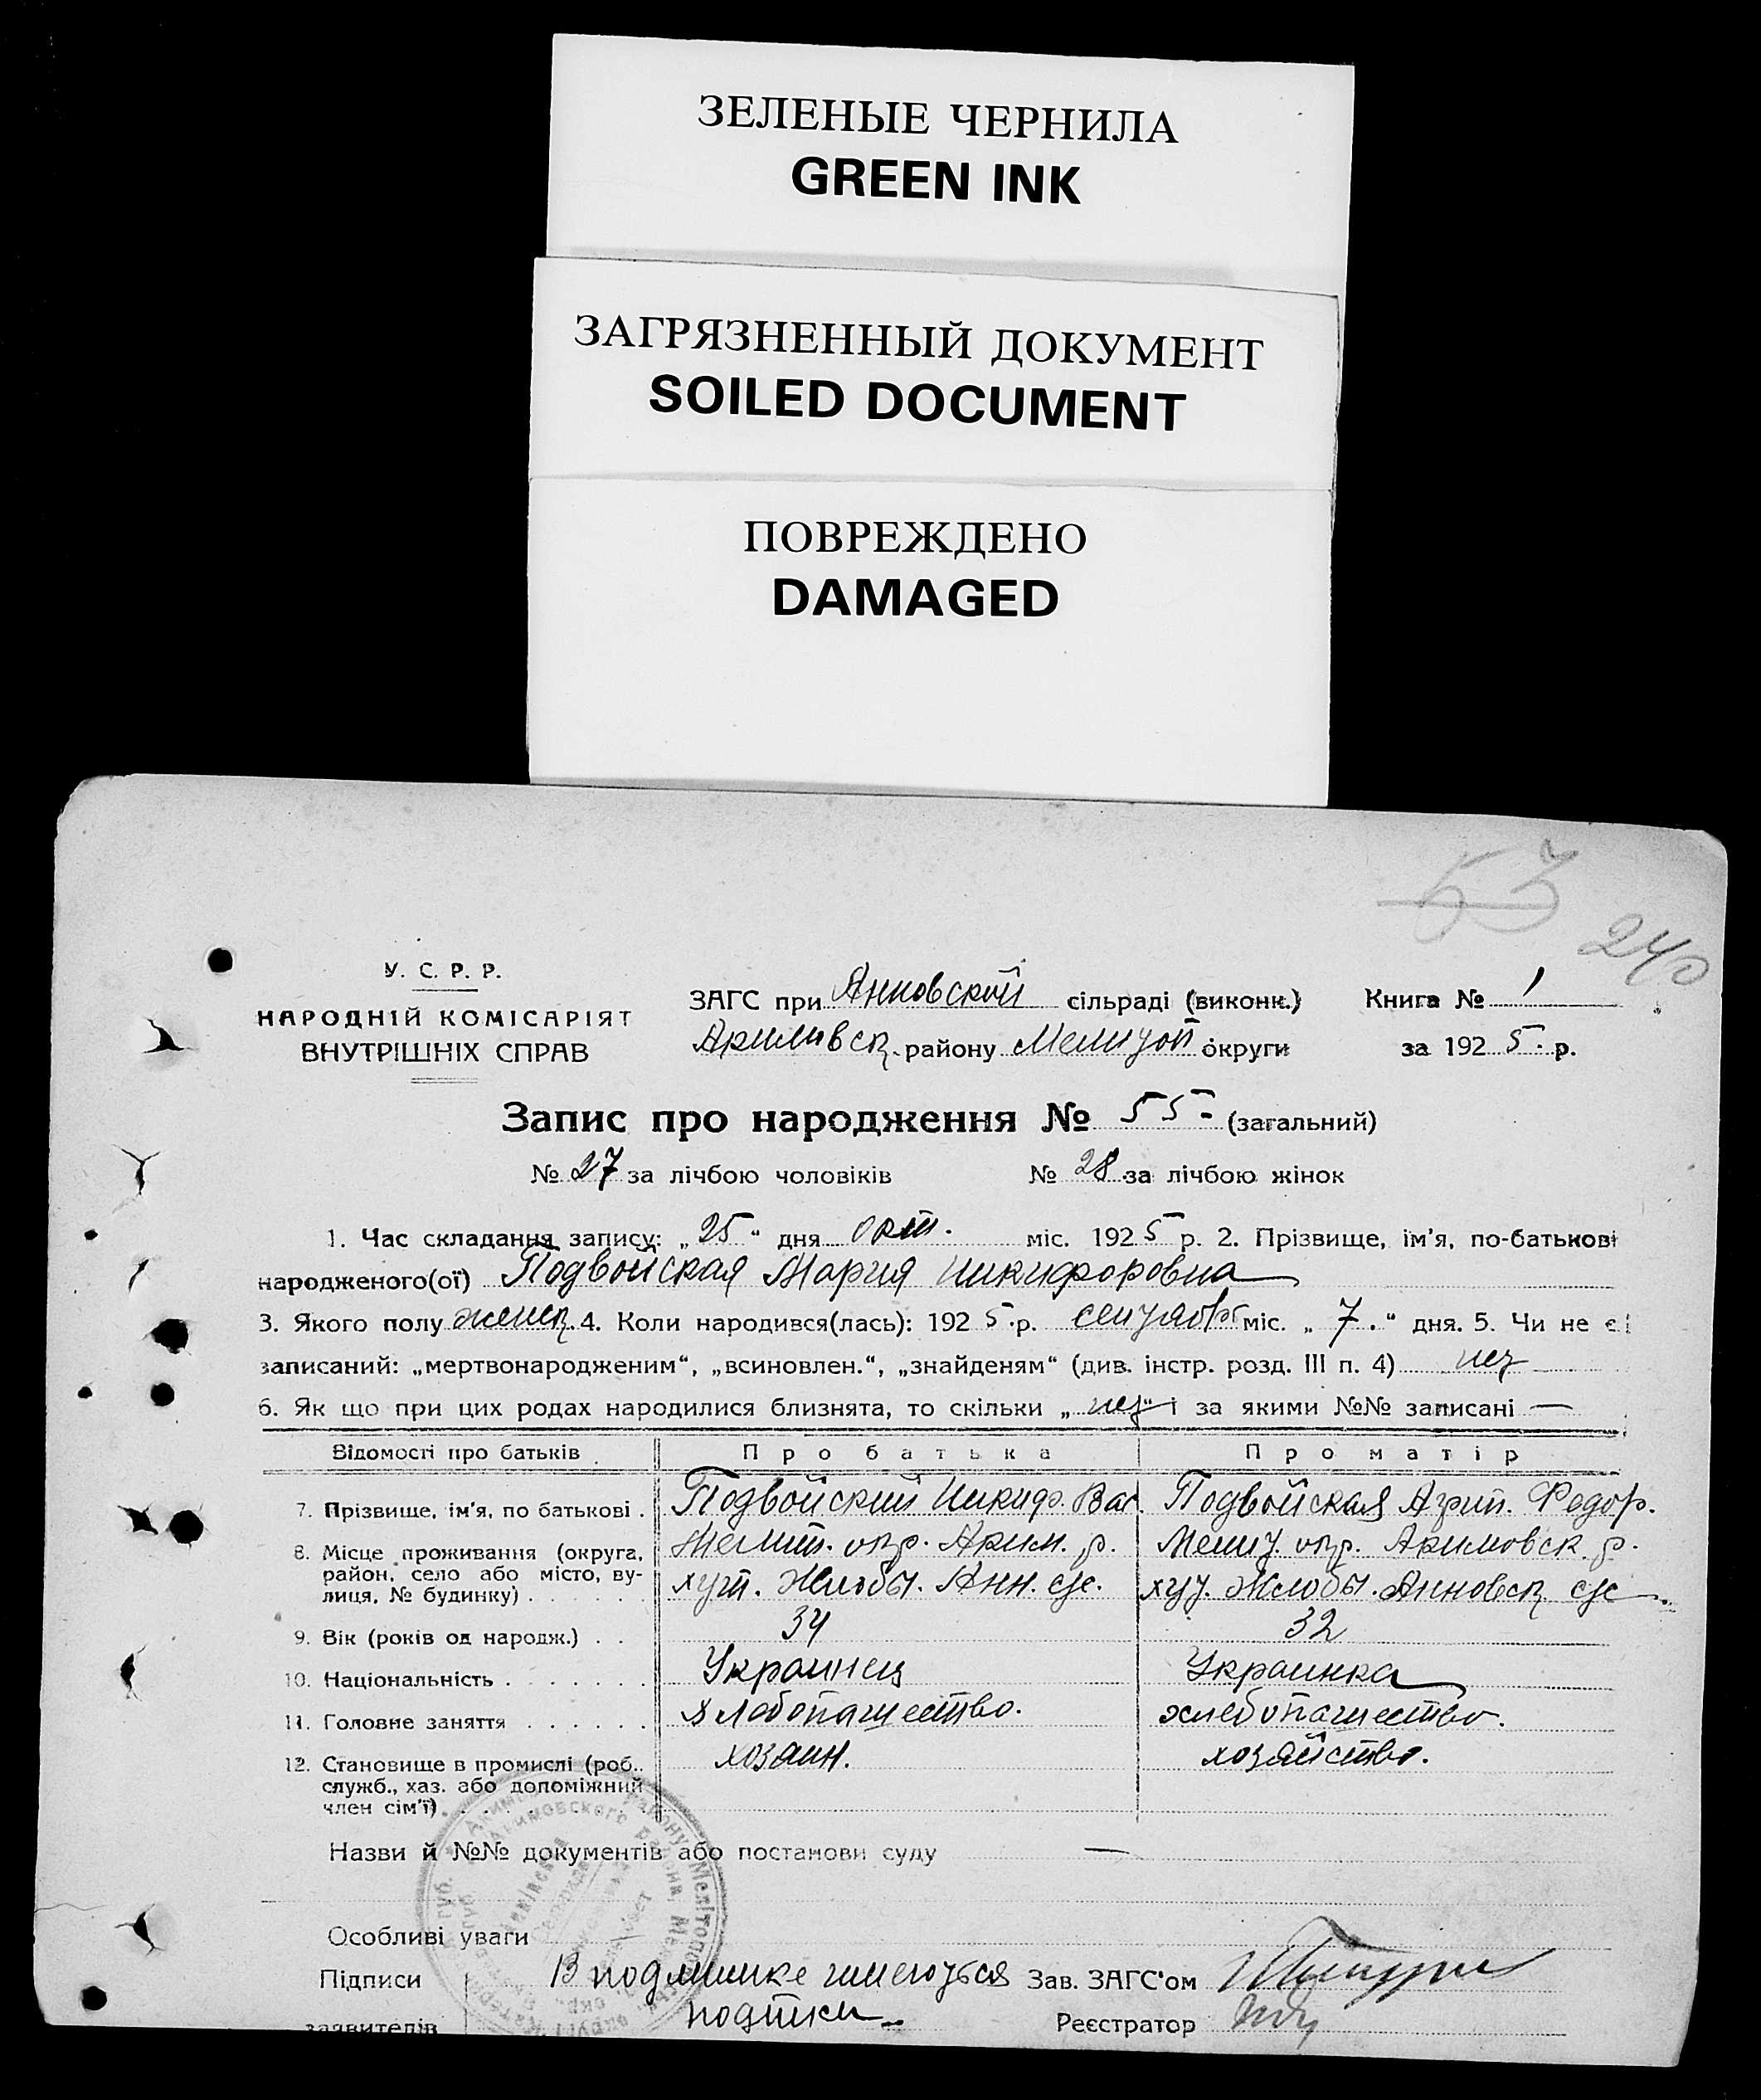 ЗЕЛЕНЫЕ ЧЕРНИЛА
GREEN INK
ЗАГРЯЗНЕННЫЙ ДОКУМЕНТ
SOILED DOCUMENT
ПОВРЕЖДЕНО
DAMAGED
53
240
У. С. Р. Р.
НАРОДНІЙ КОМІСАРІЯТ
ВНУТРІШНІХ СПРАВ
ЗАГС при Анновской сільраді (виконк.) Книга № 1
Акимовск. району Мелитоп округи за 1925. р.
Запис про народження № 55. (загальний)
№ 27 за лічбою чоловіків № 28 за лічбою жінок
1. Час складання запису: „25“ дня окт. міс. 1925 р. 2. Прізвище, ім'я, по-батькові
народженого(ої) Подвойская Мария Никифоровна
3. Якого полу женск 4. Коли народився(лась): 1925.р. сентября міс. „7.“ дня. 5. Чи не є
записаний: „мертвонародженим“, „всиновлен.“, „знайденям“ (див. інстр. розд. III п. 4) нет
6. Як що при цих родах народилися близнята, то скільки „нет“ і за якими №№ записані —
Відомости про батьків Про батька Про матір
7. Прізвище, ім'я, по батькові . Подвойский Никиф. Вас. Подвойская Агрип. Федор.
8. Місце проживання (округа, район, село або місто, вулиця, № будинку) . . . . . . Мелит. окр. Аким. р. Мелит. окр. Акимовск. р.
хут. Жлобы. Анн. с/с. хут. Жлобы. Анновск с/с
9. Вік (років од народж.) . . 34 32
10. Національність . . . . . . . Украинец Украинка
11. Головне заняття . . . . . . Хлебопашество. хлебопашество.
12. Становище в промислі (роб., служб., хаз. або допоміжний член сім'ї) . . . . . хозяин. хозяйство.
Назви й №№ документів або постанови суду —
Особливі уваги
Підписи В подлинике имеються Зав. ЗАГС'ом
заявителів подписи Реєстратор